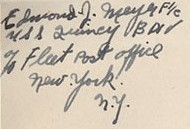 Edmond J. Meyer F1/c
USS Quincy BDiv
c/o Fleet Post office
New York.
N.Y.